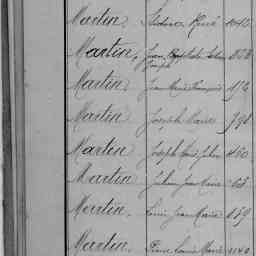 Martin Isidore René
Martin, Jean Baptiste Julien
Joseph
Martin Jean Marie François
Martin Joseph Marie
Martin Joseph Marie Julien 450
Martin Julien Jean Marie
Martin. Louis Jean Marie 659
Martin. Pierre Louis Marie 1140